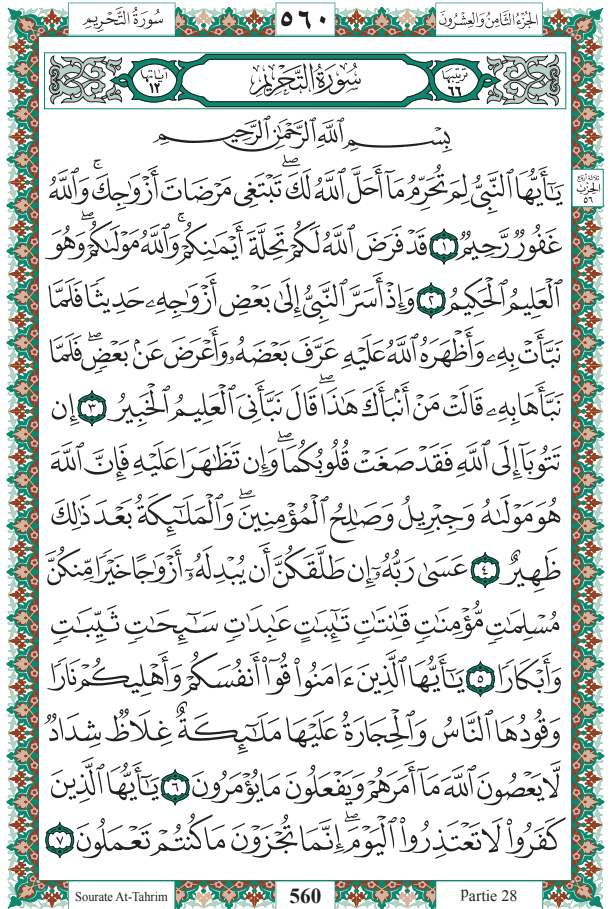 سُورَةُ التَّحْرِيمِ ٥٦٠ الجُزْءُ الثَّامِنُ وَالعِشْرُونَ
آيَاتُهَا ١٢ سُورَةُ التَّحْرِيمِ تَرْتِيبُهَا ٦٦
بِسْمِ ٱللَّهِ ٱلرَّحْمَٰنِ ٱلرَّحِيمِ
ثلاثة أرباع
الحزب
٥٦
يَٰٓأَيُّهَا ٱلنَّبِىُّ لِمَ تُحَرِّمُ مَآ أَحَلَّ ٱللَّهُ لَكَۖ تَبْتَغِى مَرْضَاتَ أَزْوَٰجِكَۚ وَٱللَّهُ
غَفُورٌ رَّحِيمٌ ١ قَدْ فَرَضَ ٱللَّهُ لَكُمْ تَحِلَّةَ أَيْمَٰنِكُمْۚ وَٱللَّهُ مَوْلَىٰكُمْۖ وَهُوَ
ٱلْعَلِيمُ ٱلْحَكِيمُ ٢ وَإِذْ أَسَرَّ ٱلنَّبِىُّ إِلَىٰ بَعْضِ أَزْوَٰجِهِۦ حَدِيثًا فَلَمَّا
نَبَّأَتْ بِهِۦ وَأَظْهَرَهُ ٱللَّهُ عَلَيْهِ عَرَّفَ بَعْضَهُۥ وَأَعْرَضَ عَنۢ بَعْضٍۖ فَلَمَّا
نَبَّأَهَا بِهِۦ قَالَتْ مَنْ أَنۢبَأَكَ هَٰذَاۖ قَالَ نَبَّأَنِىَ ٱلْعَلِيمُ ٱلْخَبِيرُ ٣ إِن
تَتُوبَآ إِلَى ٱللَّهِ فَقَدْ صَغَتْ قُلُوبُكُمَاۖ وَإِن تَظَٰهَرَا عَلَيْهِ فَإِنَّ ٱللَّهَ
هُوَ مَوْلَىٰهُ وَجِبْرِيلُ وَصَٰلِحُ ٱلْمُؤْمِنِينَۖ وَٱلْمَلَٰٓئِكَةُ بَعْدَ ذَٰلِكَ
ظَهِيرٌ ٤ عَسَىٰ رَبُّهُۥٓ إِن طَلَّقَكُنَّ أَن يُبْدِلَهُۥٓ أَزْوَٰجًا خَيْرًا مِّنكُنَّ
مُسْلِمَٰتٍ مُّؤْمِنَٰتٍ قَٰنِتَٰتٍ تَٰٓئِبَٰتٍ عَٰبِدَٰتٍ سَٰٓئِحَٰتٍ ثَيِّبَٰتٍ
وَأَبْكَارًا ٥ يَٰٓأَيُّهَا ٱلَّذِينَ ءَامَنُوا۟ قُوٓا۟ أَنفُسَكُمْ وَأَهْلِيكُمْ نَارًا
وَقُودُهَا ٱلنَّاسُ وَٱلْحِجَارَةُ عَلَيْهَا مَلَٰٓئِكَةٌ غِلَاظٌ شِدَادٌ
لَّا يَعْصُونَ ٱللَّهَ مَآ أَمَرَهُمْ وَيَفْعَلُونَ مَا يُؤْمَرُونَ ٦ يَٰٓأَيُّهَا ٱلَّذِينَ
كَفَرُوا۟ لَا تَعْتَذِرُوا۟ ٱلْيَوْمَۖ إِنَّمَا تُجْزَوْنَ مَا كُنتُمْ تَعْمَلُونَ ٧
Sourate At-Tahrim 560 Partie 28